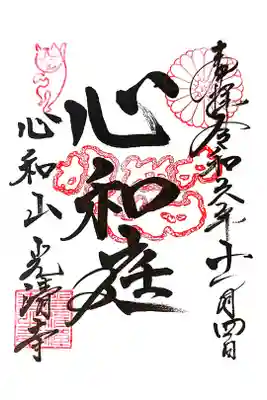 奉拝 令和六年十一月四日
心和庭
心和山 光清寺